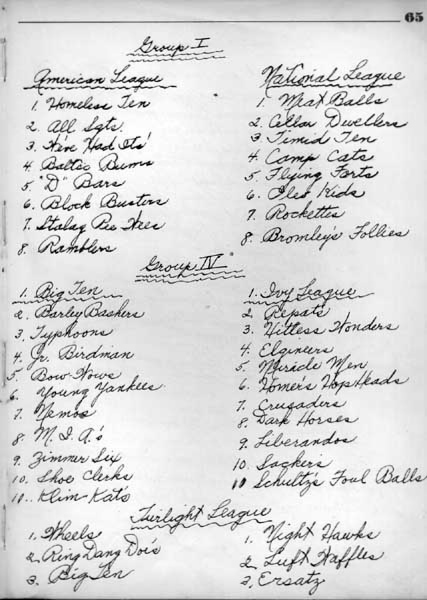 65
Group I
American League
1. Homeless Ten
2. All Sgts.
3. We've Had Its'
4. Baltic Bums
5. "D" Bars
6. Block Busters
7. Stalag Pee Wees
8. Ramblers
National League
1. Meat Balls
2. Cellar Dwellers
3. Timid Ten
4. Camp Cats
5. Flying Farts
6. Iles Kids
7. Rockettes
8. Bromley's Follies
Group IV
1. Big Ten
2. Barley Bashers
3. Typhoons
4. Jr. Birdman
5. Bow Wows
6. Young Yankees
7. Nemos
8. M.I.A.'s
9. Zimmer Six
10. Shoe Clerks
10.. Klim-Kats
1. Ivy League
2. Repats
3. Hitless Wonders
4. Elgineers
5. Miricle Men
6. Homer's Hop Heads
7. Crusaders
8. Dark Horses
9. Liberandos
10. Sackers
10 Schultz's Foul Balls
Twilight League
1. Wheels
2. Ring Dang Do's
3. Big Ten
1. Night Hawks
2. Luft Waffles
3. Ersatz